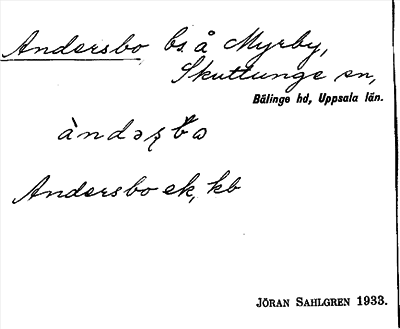 Andersbo bs. å Myrby,
Skuttunge sn,
Bälinge hd, Uppsala län.
àndəʂbo
Andersbo ek, kb
JÖRAN SAHLGREN 1933.